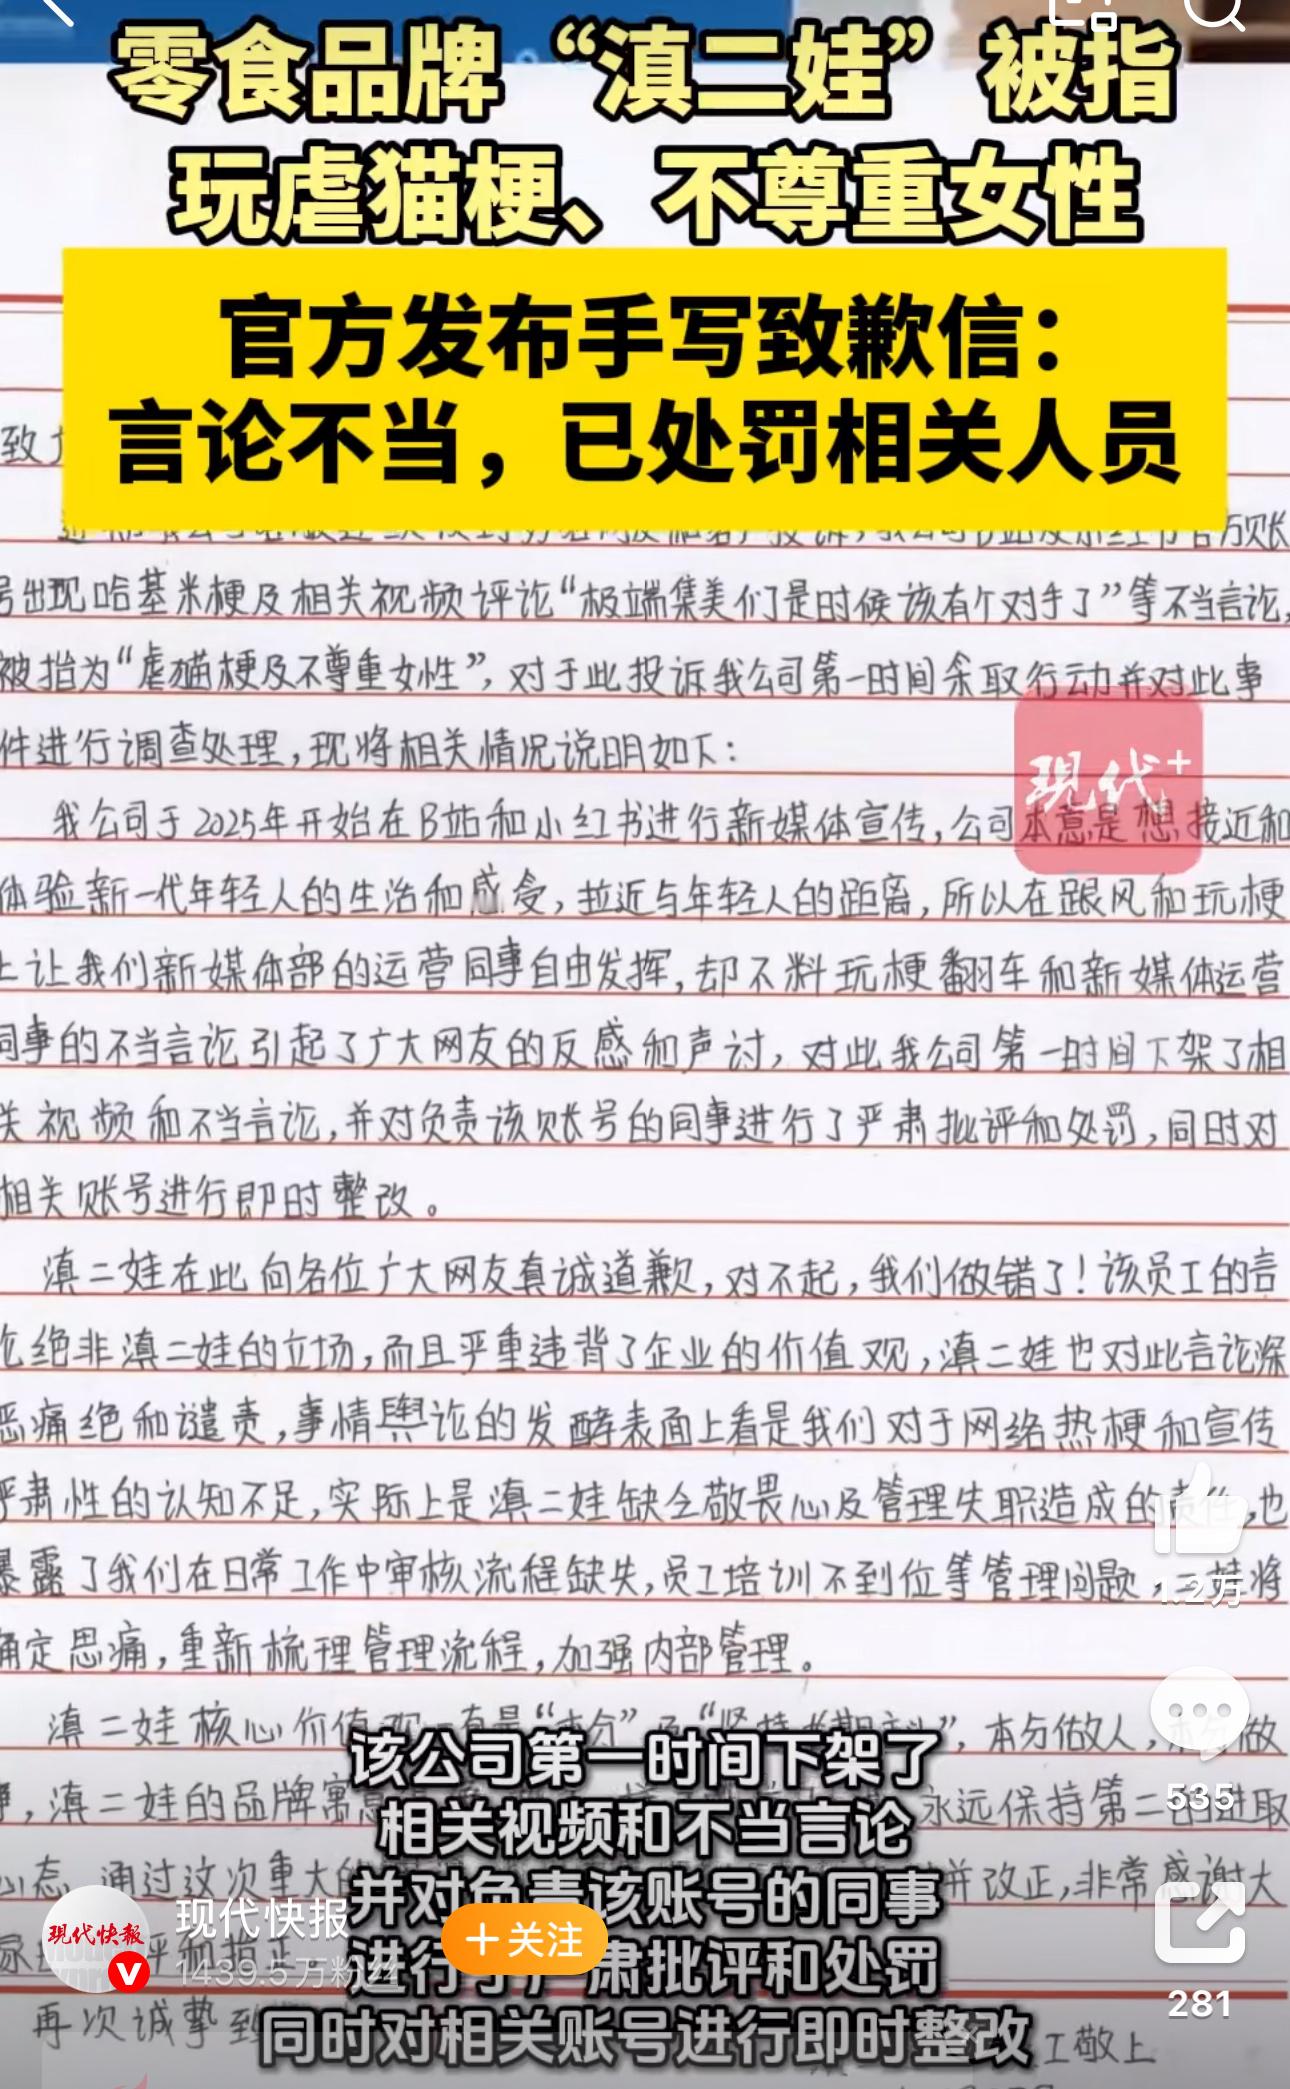 零食品牌“滇二娃”被指
玩虐猫梗、不尊重女性
官方发布手写致歉信：
言论不当，已处罚相关人员
致
号出现哈基米梗及相关视频评论“极端集美们是时候该有个对手了”等不当言论,
被指为“虐猫梗及不尊重女性”,对于此投诉我公司第一时间采取行动并对此事
件进行调查处理,现将相关情况说明如下:
现代+
我公司于2025年开始在B站和小红书进行新媒体宣传,公司本意是想接近和
体验新一代年轻人的生活和感受,拉近与年轻人的距离,所以在跟风和玩梗
上让我们新媒体部的运营同事自由发挥,却不料玩梗翻车和新媒体运营
同事的不当言论引起了广大网友的反感和声讨,对此我公司第一时间下架了相
关视频和不当言论,并对负责该账号的同事进行了严肃批评和处罚,同时对
相关账号进行即时整改。
滇二娃在此向各位广大网友真诚道歉,对不起,我们做错了!该员工的言
论绝非滇二娃的立场,而且严重违背了企业的价值观,滇二娃也对此言论深
恶痛绝和谴责,事情舆论的发酵表面上看是我们对于网络热梗和宣传
严肃性的认知不足,实际上是滇二娃缺乏敬畏心及管理失职造成的责任,也
暴露了我们在日常工作中审核流程缺失,员工培训不到位等管理问题,二娃将
痛定思痛,重新梳理管理流程,加强内部管理。
1.2万
滇二娃核心价值观一直是“本分”及“坚持长期主义”,本分做人,本分做
事,滇二娃的品牌寓意 永远保持第二的进取
心态 通过这次重大的 并改正,非常感谢大
家 评和指正
再次诚挚致
工敬上
该公司第一时间下架了
相关视频和不当言论
并对负责该账号的同事
进行了严肃批评和处罚
同时对相关账号进行即时整改
现代快报
现代快报
1439.5万粉丝
+关注
535
281